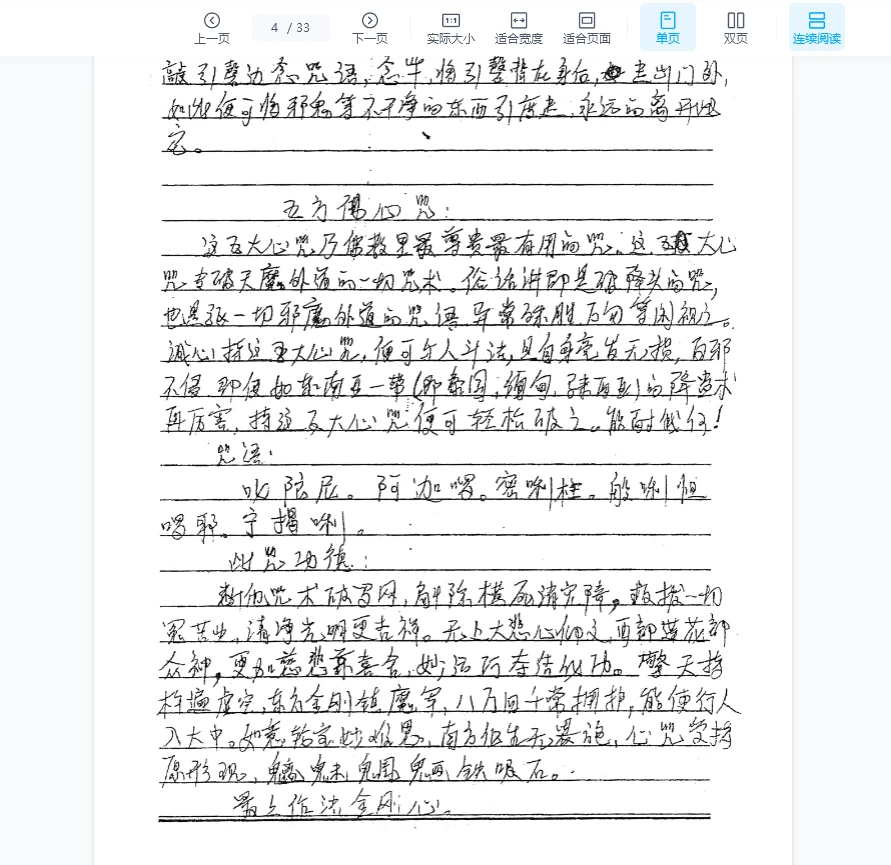 上一页 4 / 33 下一页 实际大小 适合宽度 适合页面 单页 双页 连续阅读
敲引磬边念咒语,念毕,将引磬背在身后,走出门外,
如此便可将邪鬼等不干净的东西引度走,永远的离开此
宅。
五方佛心咒:
这五大心咒乃佛教里最尊贵最有用的咒。这五大心
咒专破天魔外道的一切咒术。俗话讲即是破降头的咒,
也是破一切邪魔外道的咒语异常殊胜万勿等闲视之。
诚心持这五大心咒,便可与人斗法,且自身毫发无损,百邪
不侵 即便如东南亚一带(即泰国,缅甸,马来西亚)的降头术
再厉害,持这五大心咒便可轻松破之。能耐我何!
咒语:
叱陀尼。阿迦啰。密唎柱。般唎怛
啰耶。宁揭唎。
此咒功德:
斩他咒术破罗网,解除横死消灾障,救拔一切
冤苦业,清净光明更吉祥。无上大悲心佛文,西部莲花部
众神,更加慈悲兼喜舍,妙法 成功。擎天
遍虚空,东方金刚镇魔军,八万四千常拥护,能使行人
入大中。如意 宝妙难思,南方 生无 ,心咒受持
原形现,魑魅魍魉铁吸石。
最上 法金刚心。